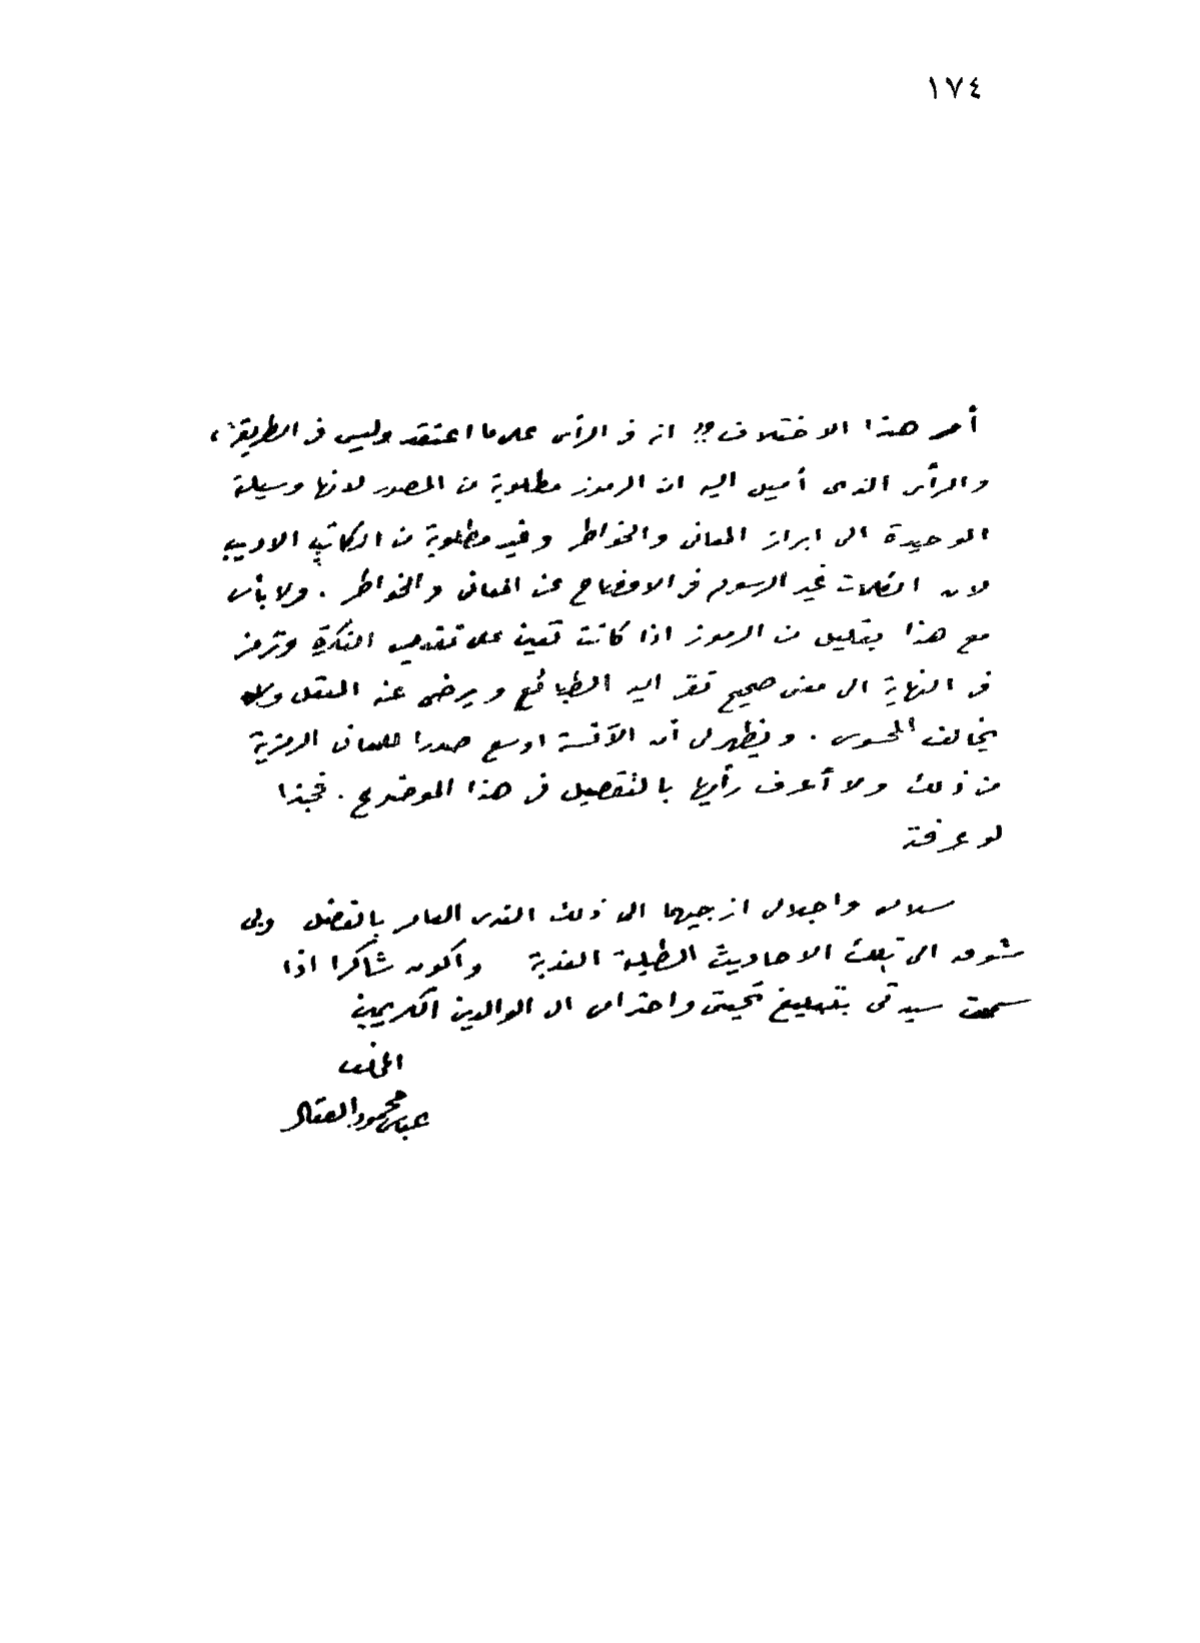 ١٧٤
أمر هذا الاختلاف؟! انه في الرأى على ما اعتقد وليس في الطريقة،
والرأى الذى أميل اليه ان الرموز مطلوبة من المصور لانها وسيلة
الوحيدة الى ابراز المعانى والخواطر وغير مطلوبة من الكاتب الاديب
لان الكلمات غير الرسوم في الافصاح عن المعانى والخواطر . ولا بأس
مع هذا بقليل من الرموز اذا كانت تعين على تقديم الفكرة وترمز
في النهاية الى معنى صحيح تقر اليه الطبائع ويرضى عنه العقل ولا
يخالف المحسوس . ويظهر لى أن الآنسة اوسع صدرا للمعانى الرمزية
من ذلك ولا أعرف رأيها بالتفصيل في هذا الموضوع . فحبذا
لو عرفته
سلامى واجلالى ازجيهما الى ذلك الندى العامر بالفضل وبى
شوق الى تلك الاحاديث الطلية العذبة واكون شاكرا اذا
سمحت سيدتى بتبليغ تحيتى واحترامى الى الوالدين الكريمين
المخلص
عباس محمود العقاد